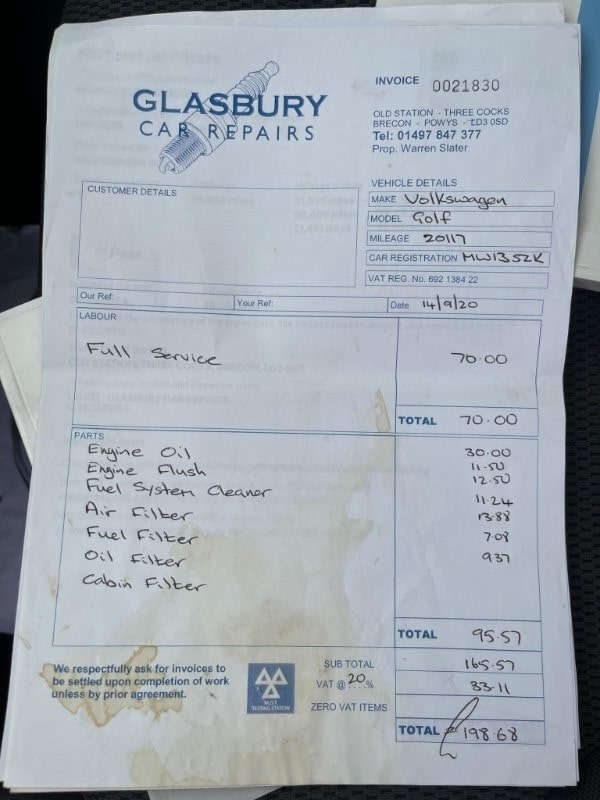 INVOICE 0021830
GLASBURY
CAR REPAIRS
OLD STATION - THREE COCKS
BRECON - POWYS - LD3 0SD
Tel: 01497 847 377
Prop. Warren Slater
CUSTOMER DETAILS
VEHICLE DETAILS
MAKE Volkswagen
MODEL Golf
MILEAGE 20117
CAR REGISTRATION MW13 SZK
VAT REG. No. 692 1384 22
Our Ref:
Your Ref:
Date 14/9/20
LABOUR
Full Service 70.00
TOTAL 70.00
PARTS
Engine Oil 30.00
Engine Flush 11.50
Fuel System Cleaner 12.50
Air Filter 11.24
Fuel Filter 13.88
Oil Filter 7.08
Cabin Filter 9.37
TOTAL 95.57
We respectfully ask for invoices to
be settled upon completion of work
unless by prior agreement.
M.O.T.
TESTING STATION
SUB TOTAL 165.57
VAT @ 20 % 33.11
ZERO VAT ITEMS
TOTAL £198.68